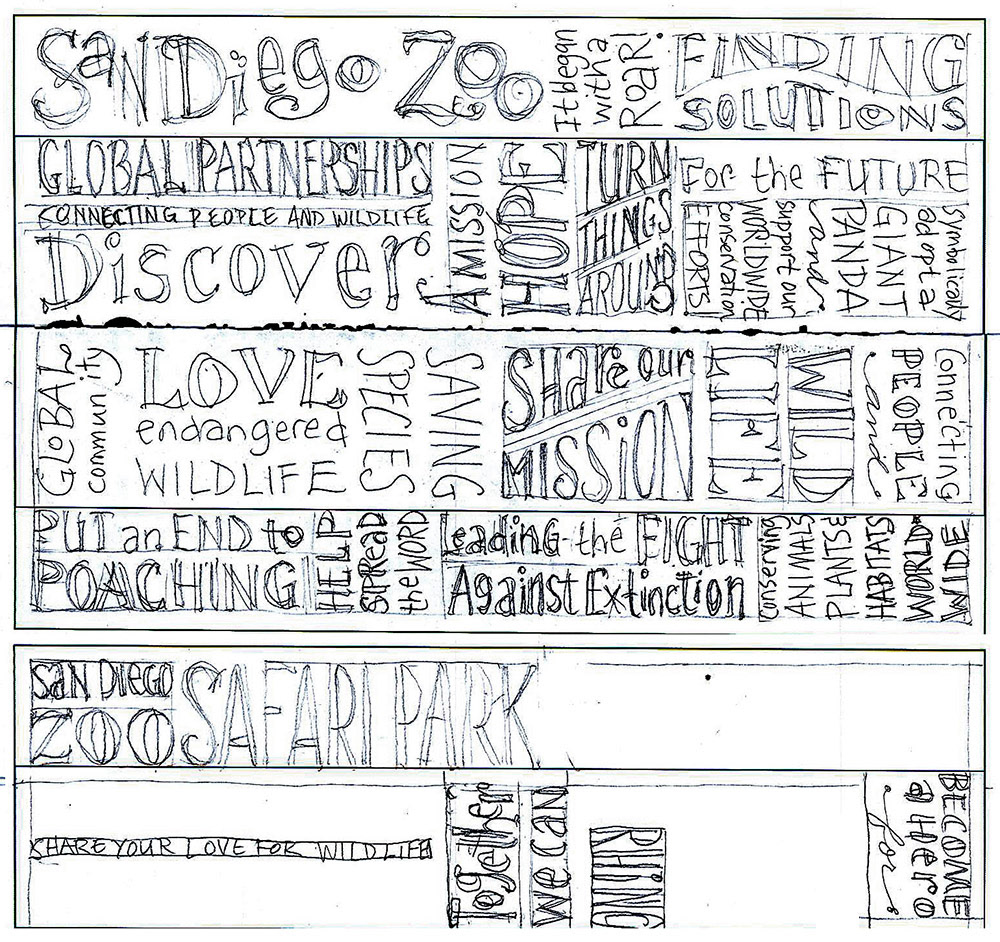 SAN DIEGO ZOO
It began
with a
ROAR!
FINDING
SOLUTIONS
GLOBAL PARTNERSHIPS
CONNECTING PEOPLE AND WILDLIFE
Discover
A MISSION
HOPE
TURN
THINGS
AROUND
For the FUTURE
Symbolically
adopt a
GIANT
PANDA
and
support our
WORLDWIDE
conservation
EFFORTS!
GLOBAL
community
LOVE
endangered
WILDLIFE
SAVING
SPECIES
SHare our
MISSION
WILD
LIFE
Connecting
PEOPLE
and
PUT an END to
POACHING
HELP
SPREAD
the WORD
Leading the FIGHT
Against Extinction
conserving
ANIMALS
PLANTS &
HABITATS
WORLD
WIDE
SAN DIEGO
ZOO
SAFARI PARK
SHARE YOUR LOVE FOR WILDLIFE
Together
we can
BECOME
a Hero
for